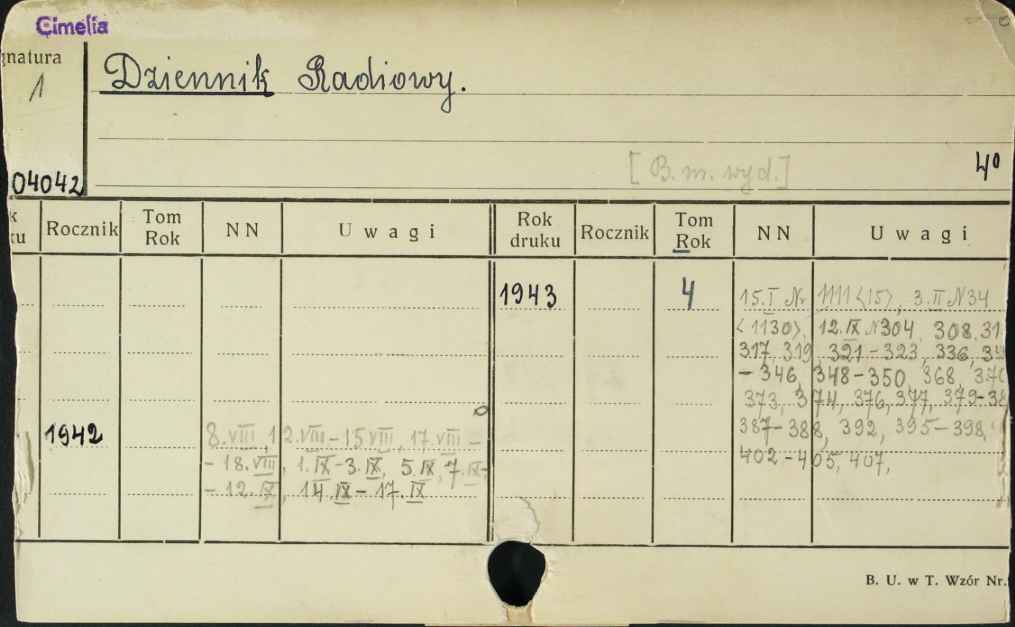 Cimelia
gnatura
1
Dziennik Radiowy.
[B. m. wyd.]
4º
04042
k
ku
Rocznik
Tom
Rok
NN
Uwagi
Rok
druku
Rocznik
Tom
Rok
NN
Uwagi
1943 4 15.I Nr 1111 <15>, 3.II N34
<1130>, 12.IX N304, 308, 31
317, 319, 321-323, 336, 34
-346, 348-350, 368, 370
373, 374, 376, 377, 379-38
387-388, 392, 395-398,
402-405, 407,
1942 8.VIII, 12.VIII-15 VIII, 17.VIII-
-18.VIII, 1.IX-3.IX, 5.IX, 7.IX-
-12.IX, 14.IX-17.IX
B. U. w T. Wzór Nr.